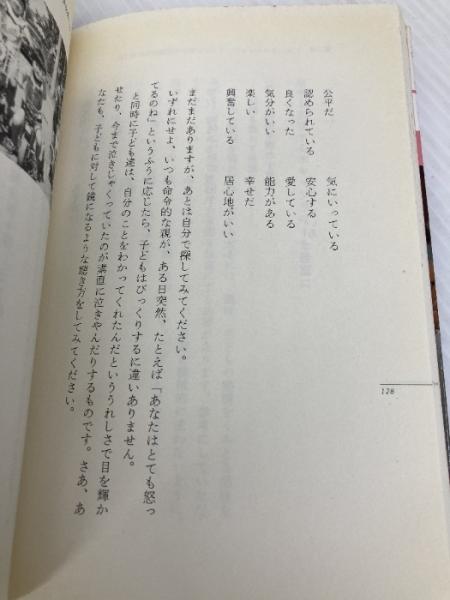 公平だ　　　　気にいっている
認められている　　安心する
良くなった　　愛している
気分がいい　　能力がある
楽しい　　　　幸せだ
興奮している　　居心地がいい
まだまだありますが、あとは自分で探してみてください。
いずれにせよ、いつも命令的な親が、ある日突然、たとえば「あなたはとても怒っ
てるのね」というふうに応じたら、子どもはびっくりするに違いありません。
と同時に子ども達は、自分のことをわかってくれたんだといううれしさで目を輝か
せたり、今まで泣きじゃくっていたのが素直に泣きやんだりするものです。さあ、あ
なたも、子どもに対して鏡になるような聴き方をしてみてください。
128